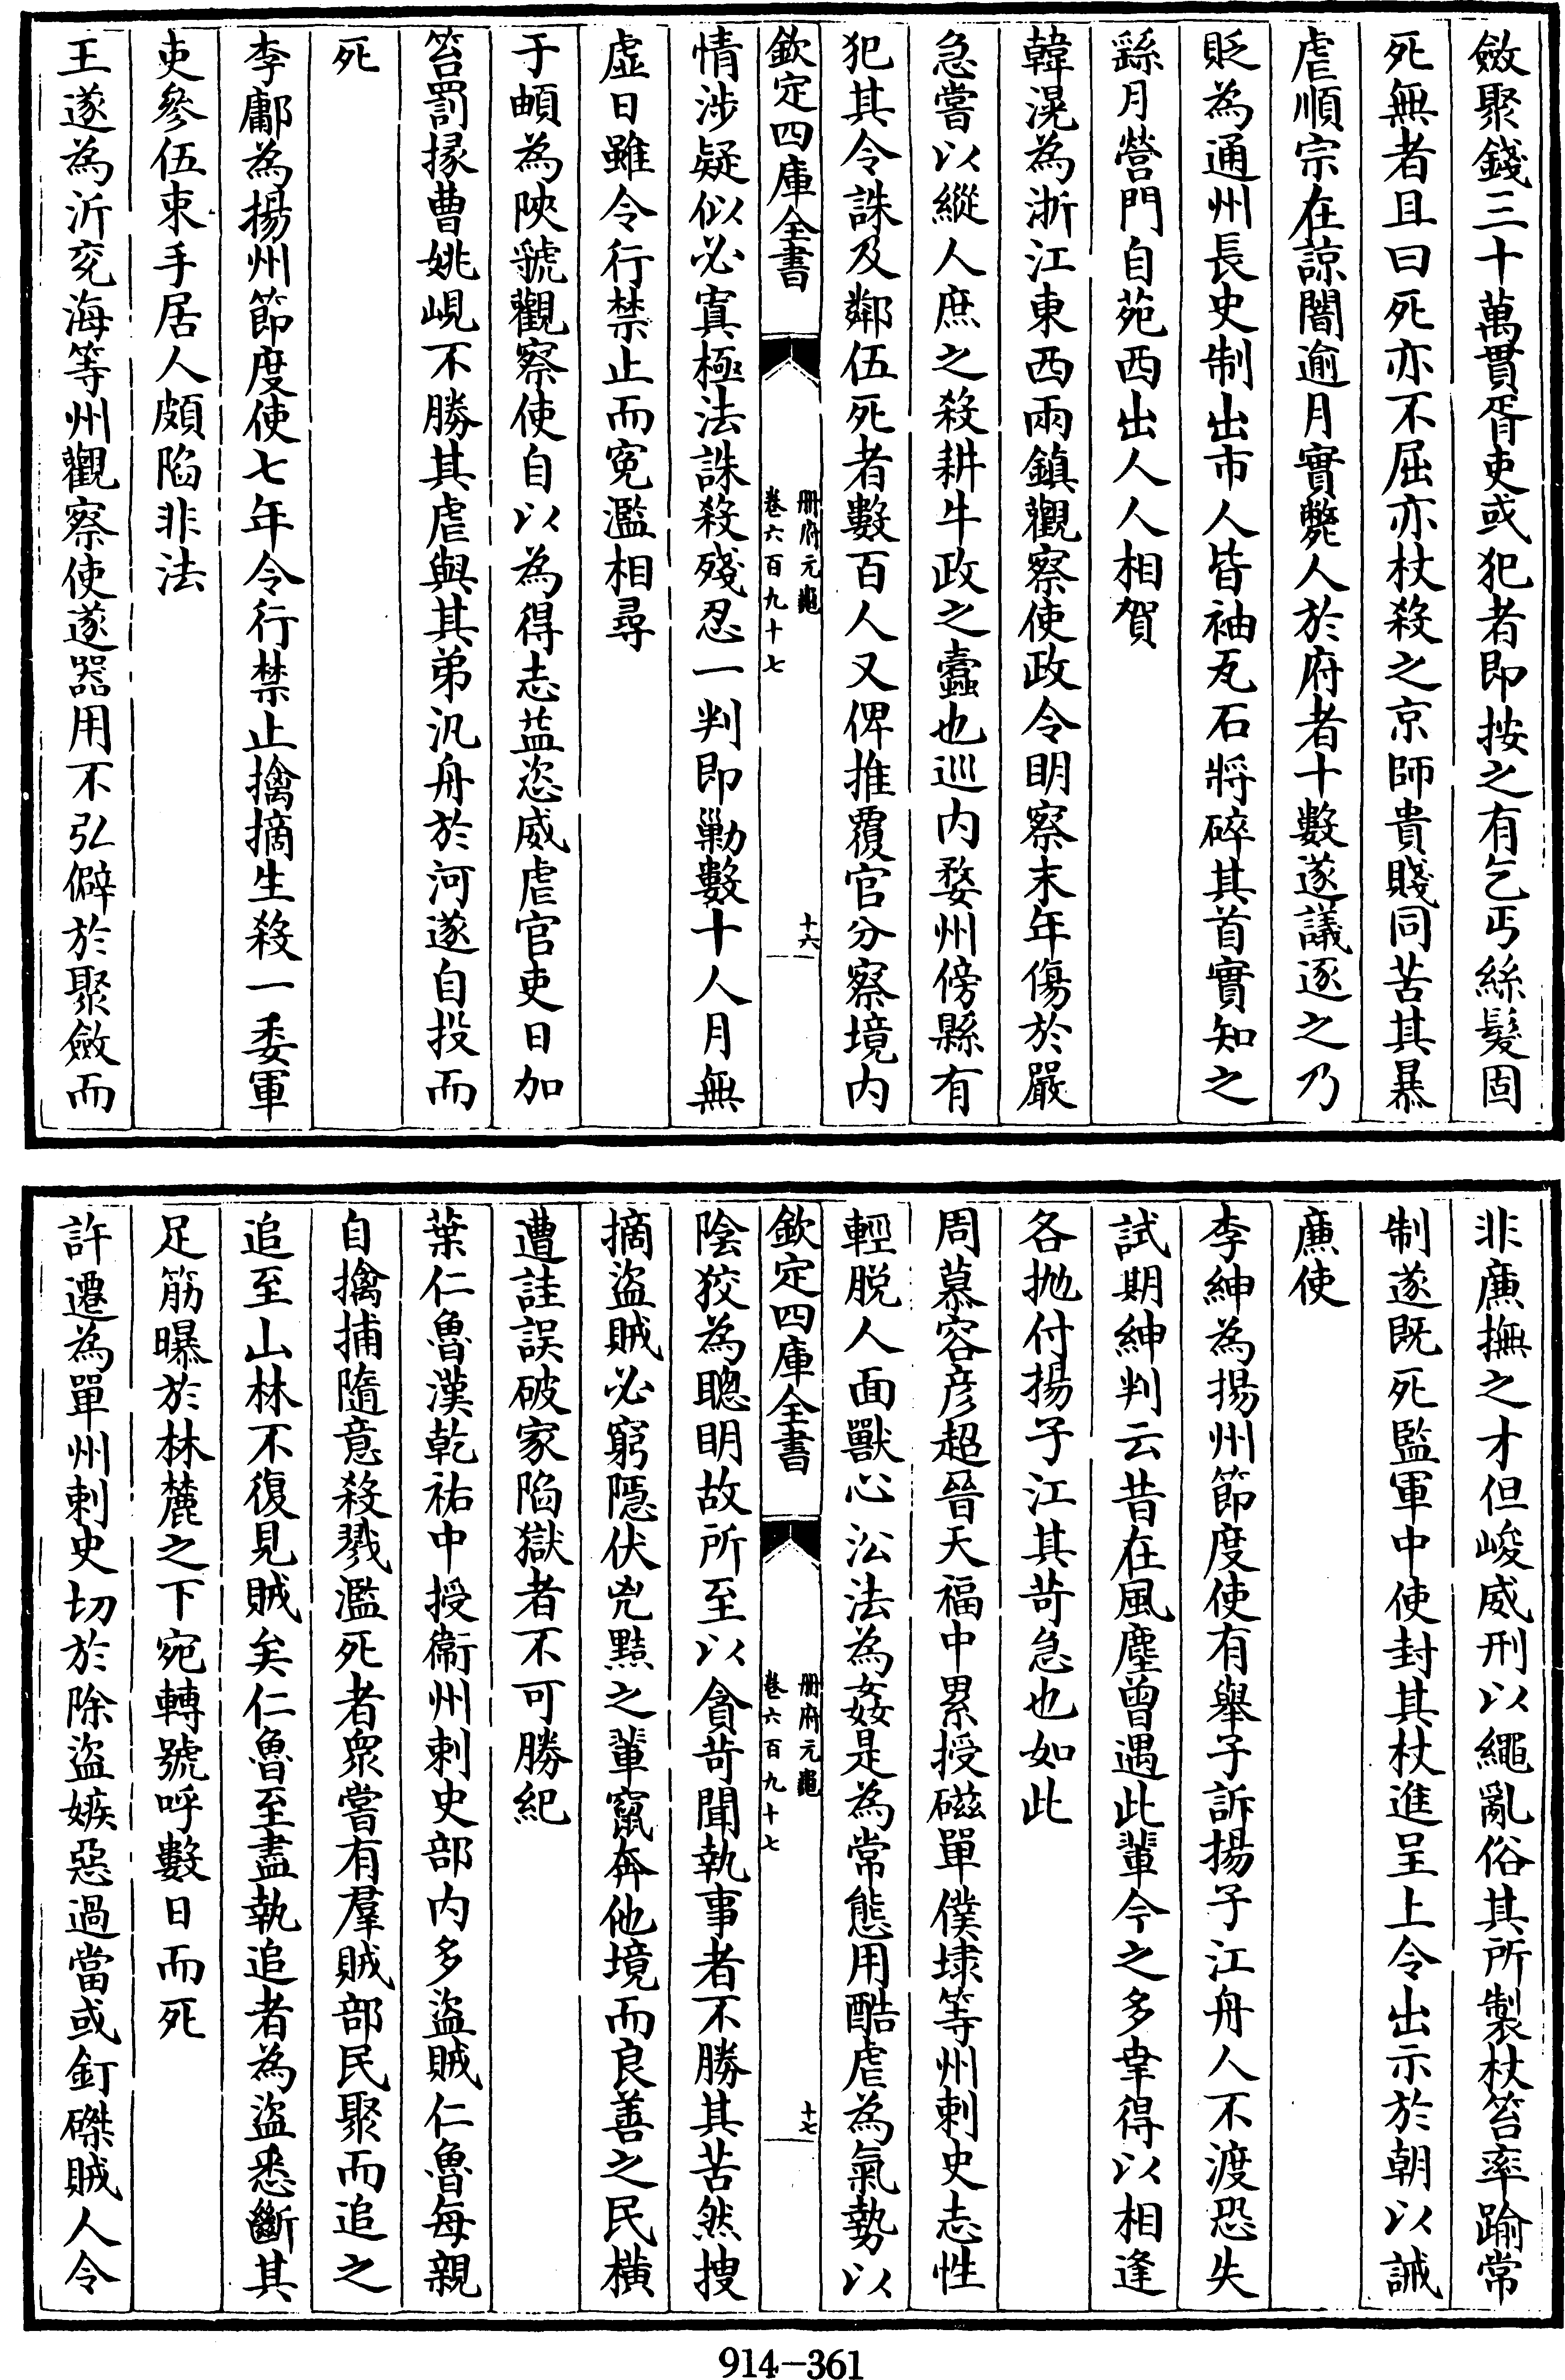 斂聚錢三十萬貫胥吏或犯者即按之有乞丐絲髮固
死無者且曰死亦不屈亦杖殺之京師貴賤同苦其暴
虐順宗在諒闇逾月實斃人於府者十數遂議逐之乃
貶為通州長史制出市人皆袖瓦石將碎其首實知之
繇月營門自苑西出人人相賀
韓滉為浙江東西兩鎮觀察使政令明察末年傷於嚴
急嘗以縱人庶之殺耕牛政之蠧也巡内婺州傍縣有
犯其令誅及鄰伍死者數百人又俾推覆官分察境内
欽定四庫全書
册府元龜
卷六百九十七
十六
情涉疑似必寘極法誅殺殘忍一判即勦數十人月無
虚日雖令行禁止而寃濫相尋
于頔為陜虢觀察使自以為得志益恣威虐官吏日加
笞罰掾曹姚峴不勝其虐與其弟汎舟於河遂自投而
死
李鄘為揚州節度使七年令行禁止擒摘生殺一委軍
吏參伍束手居人頗陷非法
王遂為沂兖海等州觀察使遂器用不弘僻於聚斂而
非廉撫之才但峻威刑以繩亂俗其所製杖笞率踰常
制遂既死監軍中使封其杖進呈上令出示於朝以誡
廉使
李紳為揚州節度使有舉子訴揚子江舟人不渡恐失
試期紳判云昔在風塵曾遇此輩今之多幸得以相逢
各抛付揚子江其苛急也如此
周慕容彦超晉天福中累授磁單僕隸等州刺史志性
輕脱人面獸心㳂法為姦是為常態用酷虐為氣勢以
欽定四庫全書
册府元龜
卷六百九十七
十七
陰狡為聰明故所至以貪苛聞執事者不勝其苦然搜
摘盜賊必窮隱伏兇黠之輩竄奔他境而良善之民横
遭詿誤破家陷獄者不可勝紀
葉仁魯漢乾祐中授衞州刺史部内多盜賊仁魯每親
自擒捕隨意殺戮濫死者衆嘗有羣賊部民聚而追之
追至山林不復見賊矣仁魯至盡執追者為盜悉斷其
足筋曝於林麓之下宛轉號呼數日而死
許遷為單州刺史切於除盜嫉惡過當或釘磔賊人令
914-361